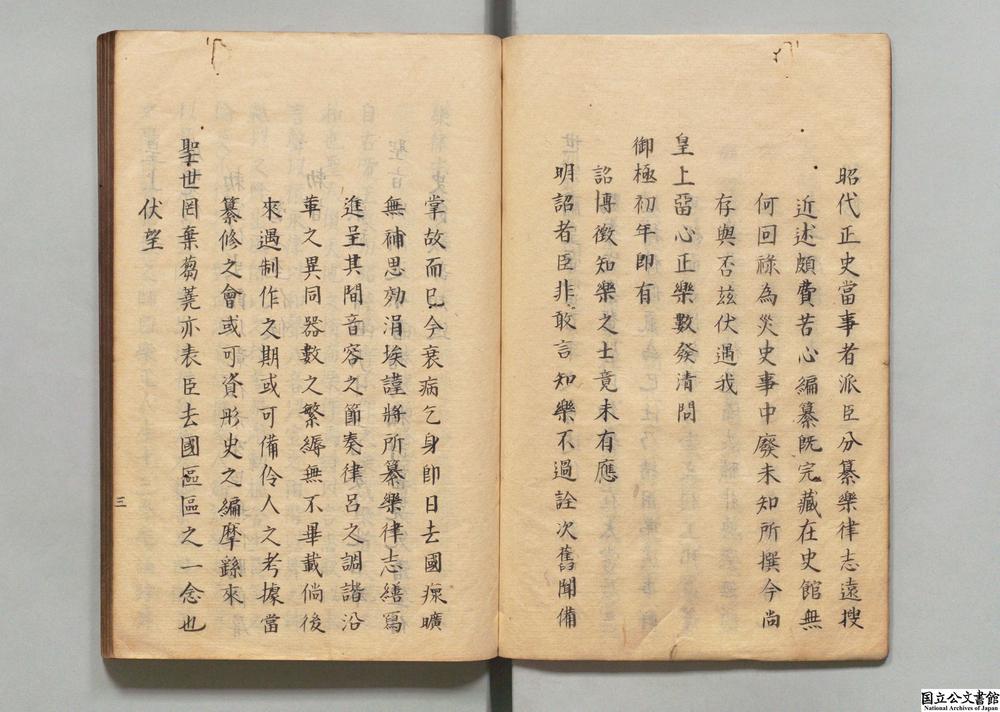 昭代正史當事者派臣分纂樂律志遠搜
近述頗費苦心編纂既完藏在史館無
何回祿為災史事中廢未知所撰今尚
存與否茲伏遇我
皇上畱心正樂數發清問
御極初年即有
詔博徵知樂之士竟未有應
明詔者臣非敢言知樂不過詮次舊聞備
掌故而已今衰病乞身即日去國瘝曠
無補思効涓埃謹將所纂樂律志繕寫
進呈其間音容之節奏律呂之調諧沿
革之異同器數之繁縟無不畢載倘後
來遇制作之期或可備伶人之考據當
纂修之會或可資彤史之編摩繇來
聖世罔棄蒭蕘亦表臣去國區區之一念也
伏望
三
国立公文書館
National Archives of Japan